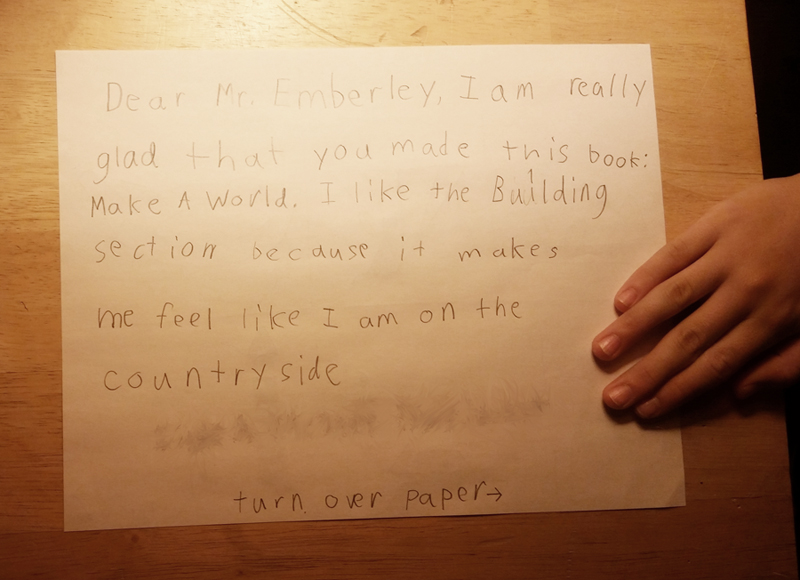 Dear Mr. Emberley, I am really
glad that you made this book:
Make A World. I like the Building
section because it makes
me feel like I am on the
countryside
turn over paper→